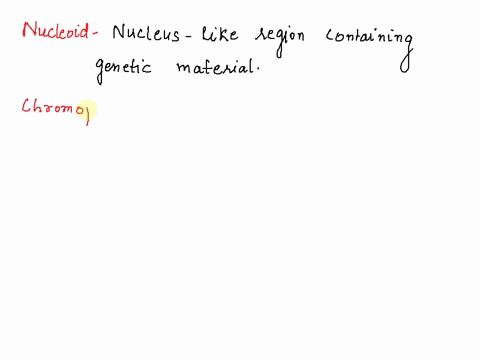 Nucleoid - Nucleus-like region containing
genetic material.
Chromo